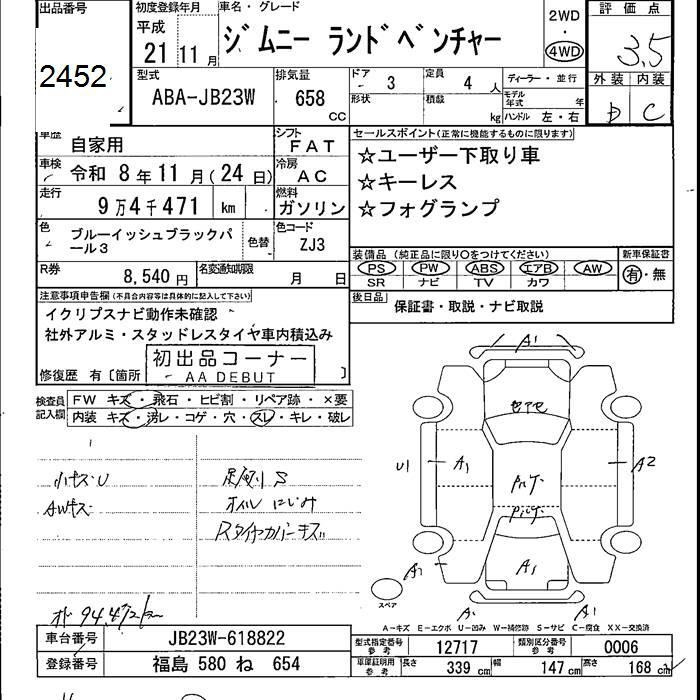 出品番号
2452
初度登録年月
平成
21 11月
車名・グレード
ジムニー ランドベンチャー
2WD
・
4WD
評価点
3.5
型式
ABA-JB23W
排気量
658
CC
ドア 3
定員 4 人
形状
積載 kg
ディーラー・並行
モデル年式 年
ハンドル 左・右
外装 内装
D C
車歴
自家用
シフト
FAT
車検
令和 8年 11月 (24日)
冷房
AC
走行
9万4千471 km
燃料
ガソリン
色
ブルーイッシュブラックパール3
色替
色コード
ZJ3
R券
8,540円
名変通知期限
月 日
セールスポイント(正常に機能するものに限ります)
☆ユーザー下取り車
☆キーレス
☆フォグランプ
装備品 (純正品に限り○をつけてください)
PS PW ABS エアB AW
SR ナビ TV カワ
新車保証書
有・無
後日品
保証書・取説・ナビ取説
注意事項申告欄(不具合内容等は具体的に記入して下さい)
イクリプスナビ動作未確認
社外アルミ・スタッドレスタイヤ車内積込み
初出品コーナー
AA DEBUT
修復歴 有〔箇所 〕
検査員記入欄
FW キズ・飛石・ヒビ割・リペア跡・×要
内装 キズ・汚レ・コゲ・穴・スレ・キレ・破レ
小キズU
AWキズ
足廻りS
オイルにじみ
スタイヤカバーキズ
U1
A1
A2
A1
スペア
A-キズ E-エクボ U-凹み W-補修跡 S-サビ C-腐食 XX-交換済
車台番号
JB23W-618822
型式指定番号
参考
12717
類別区分番号
参考
0006
登録番号
福島 580 ね 654
車庫証明用
参考
長さ 339 cm
幅 147 cm
高さ 168 cm